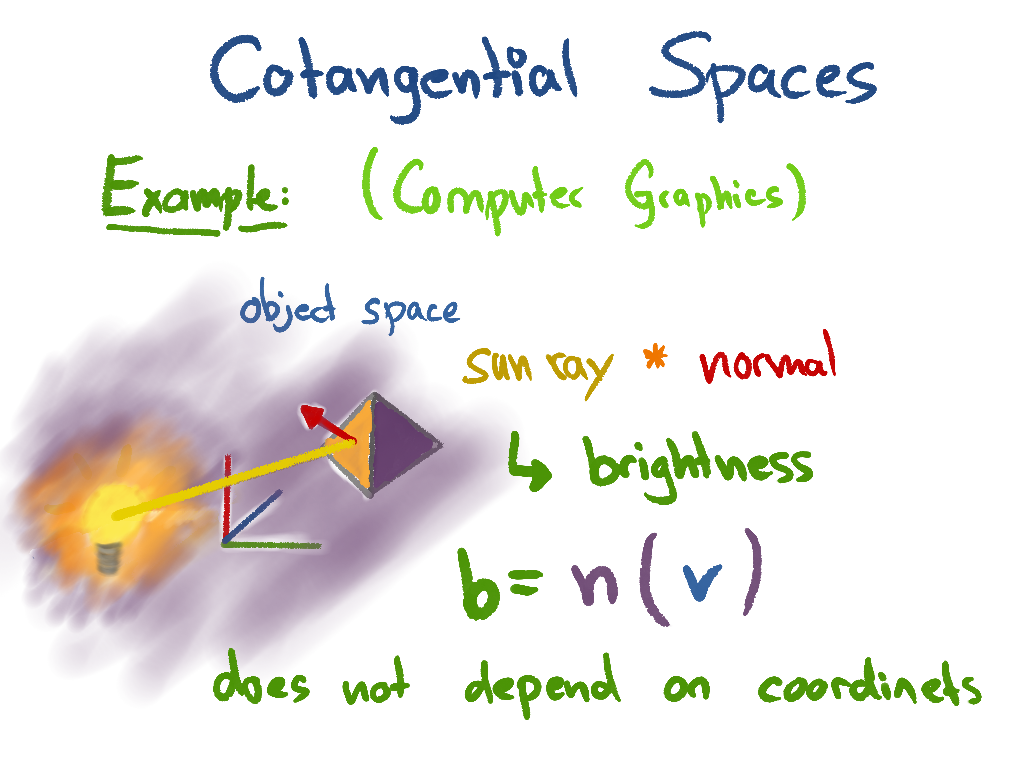 Cotangential Spaces
Example: (Computer Graphics)
object space
sun ray * normal
↳ brightness
b = n(v)
does not depend on coordinets